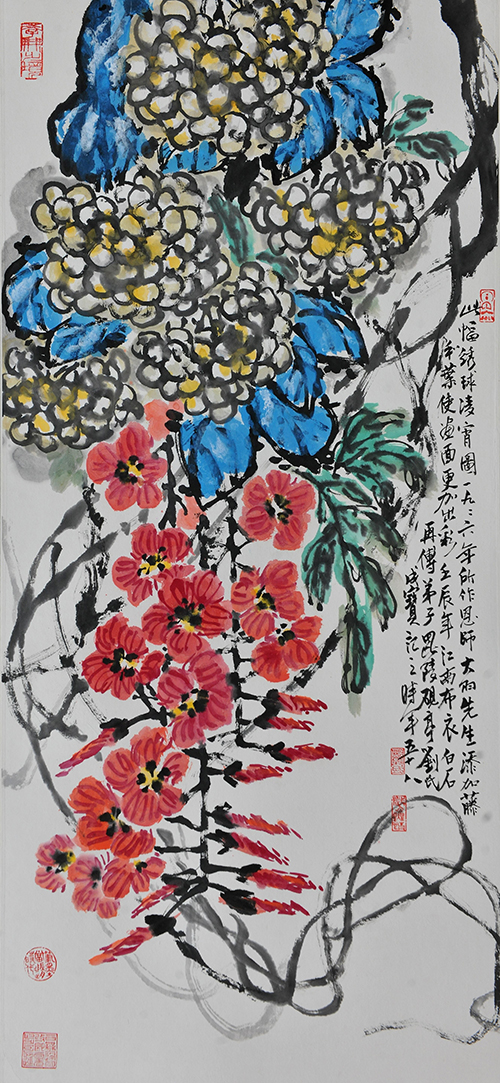 此幅锈球凌霄圖一九三六年所作恩師大羽先生添加藤
本葉使画面更加出彩壬辰年江南布衣白石
再傳弟子毗陵碩亭劉氏
成寶記之時年五十八